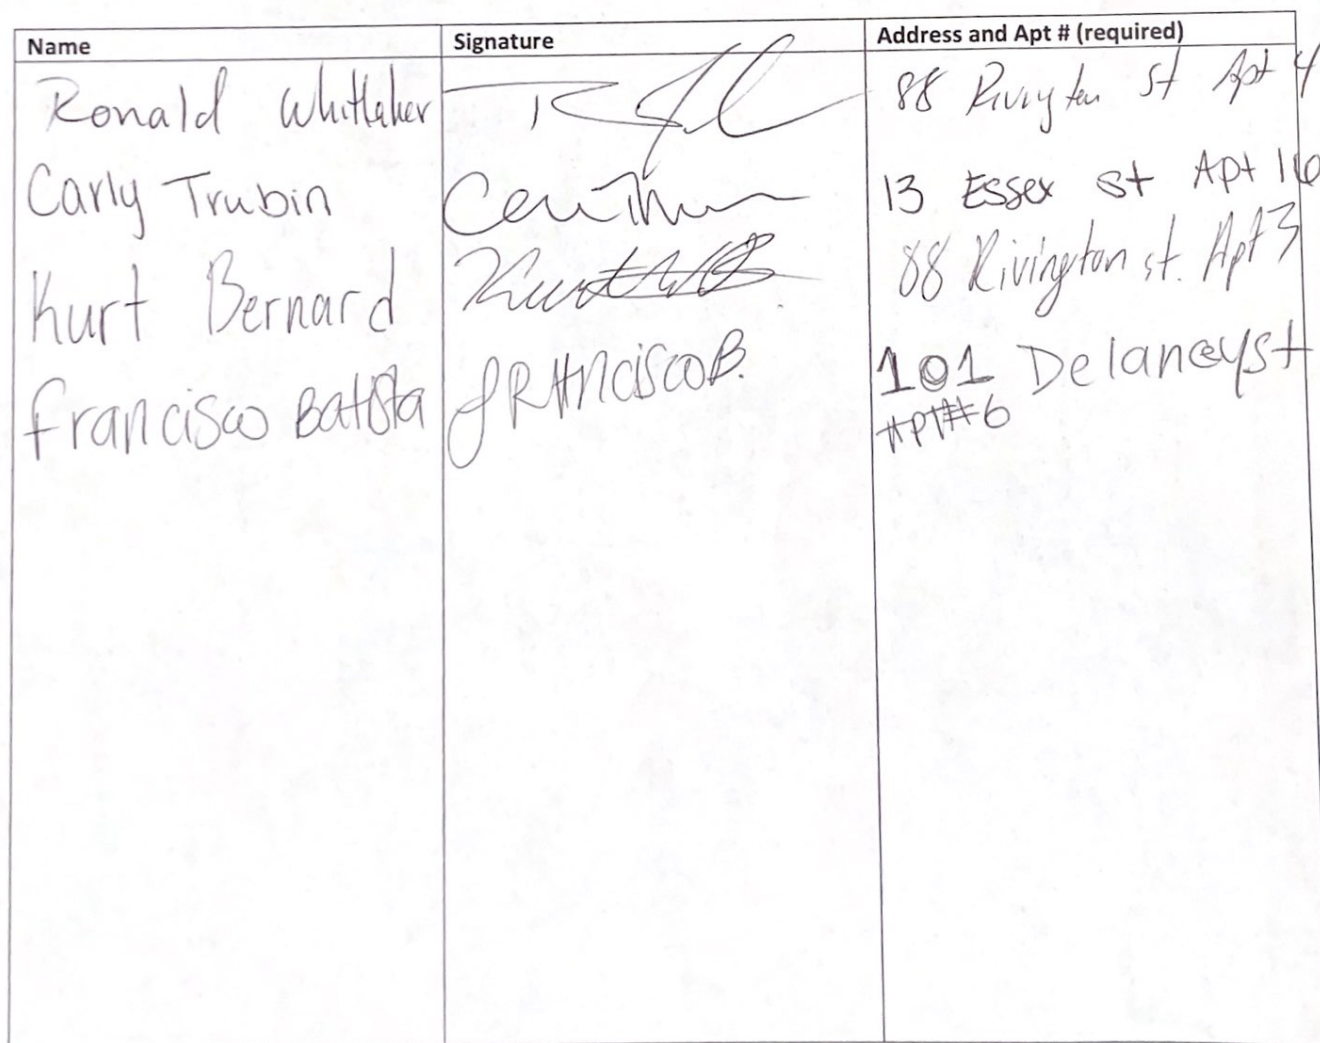 Name Signature Address and Apt # (required)
Ronald Whittaker 88 Rivington St Apt 4
Carly Trubin 13 Essex st Apt 16
Kurt Bernard Kurt 88 Rivington st. Apt 3
francisco Batista fRANciscoB. 101 Delanceyst
APT#6